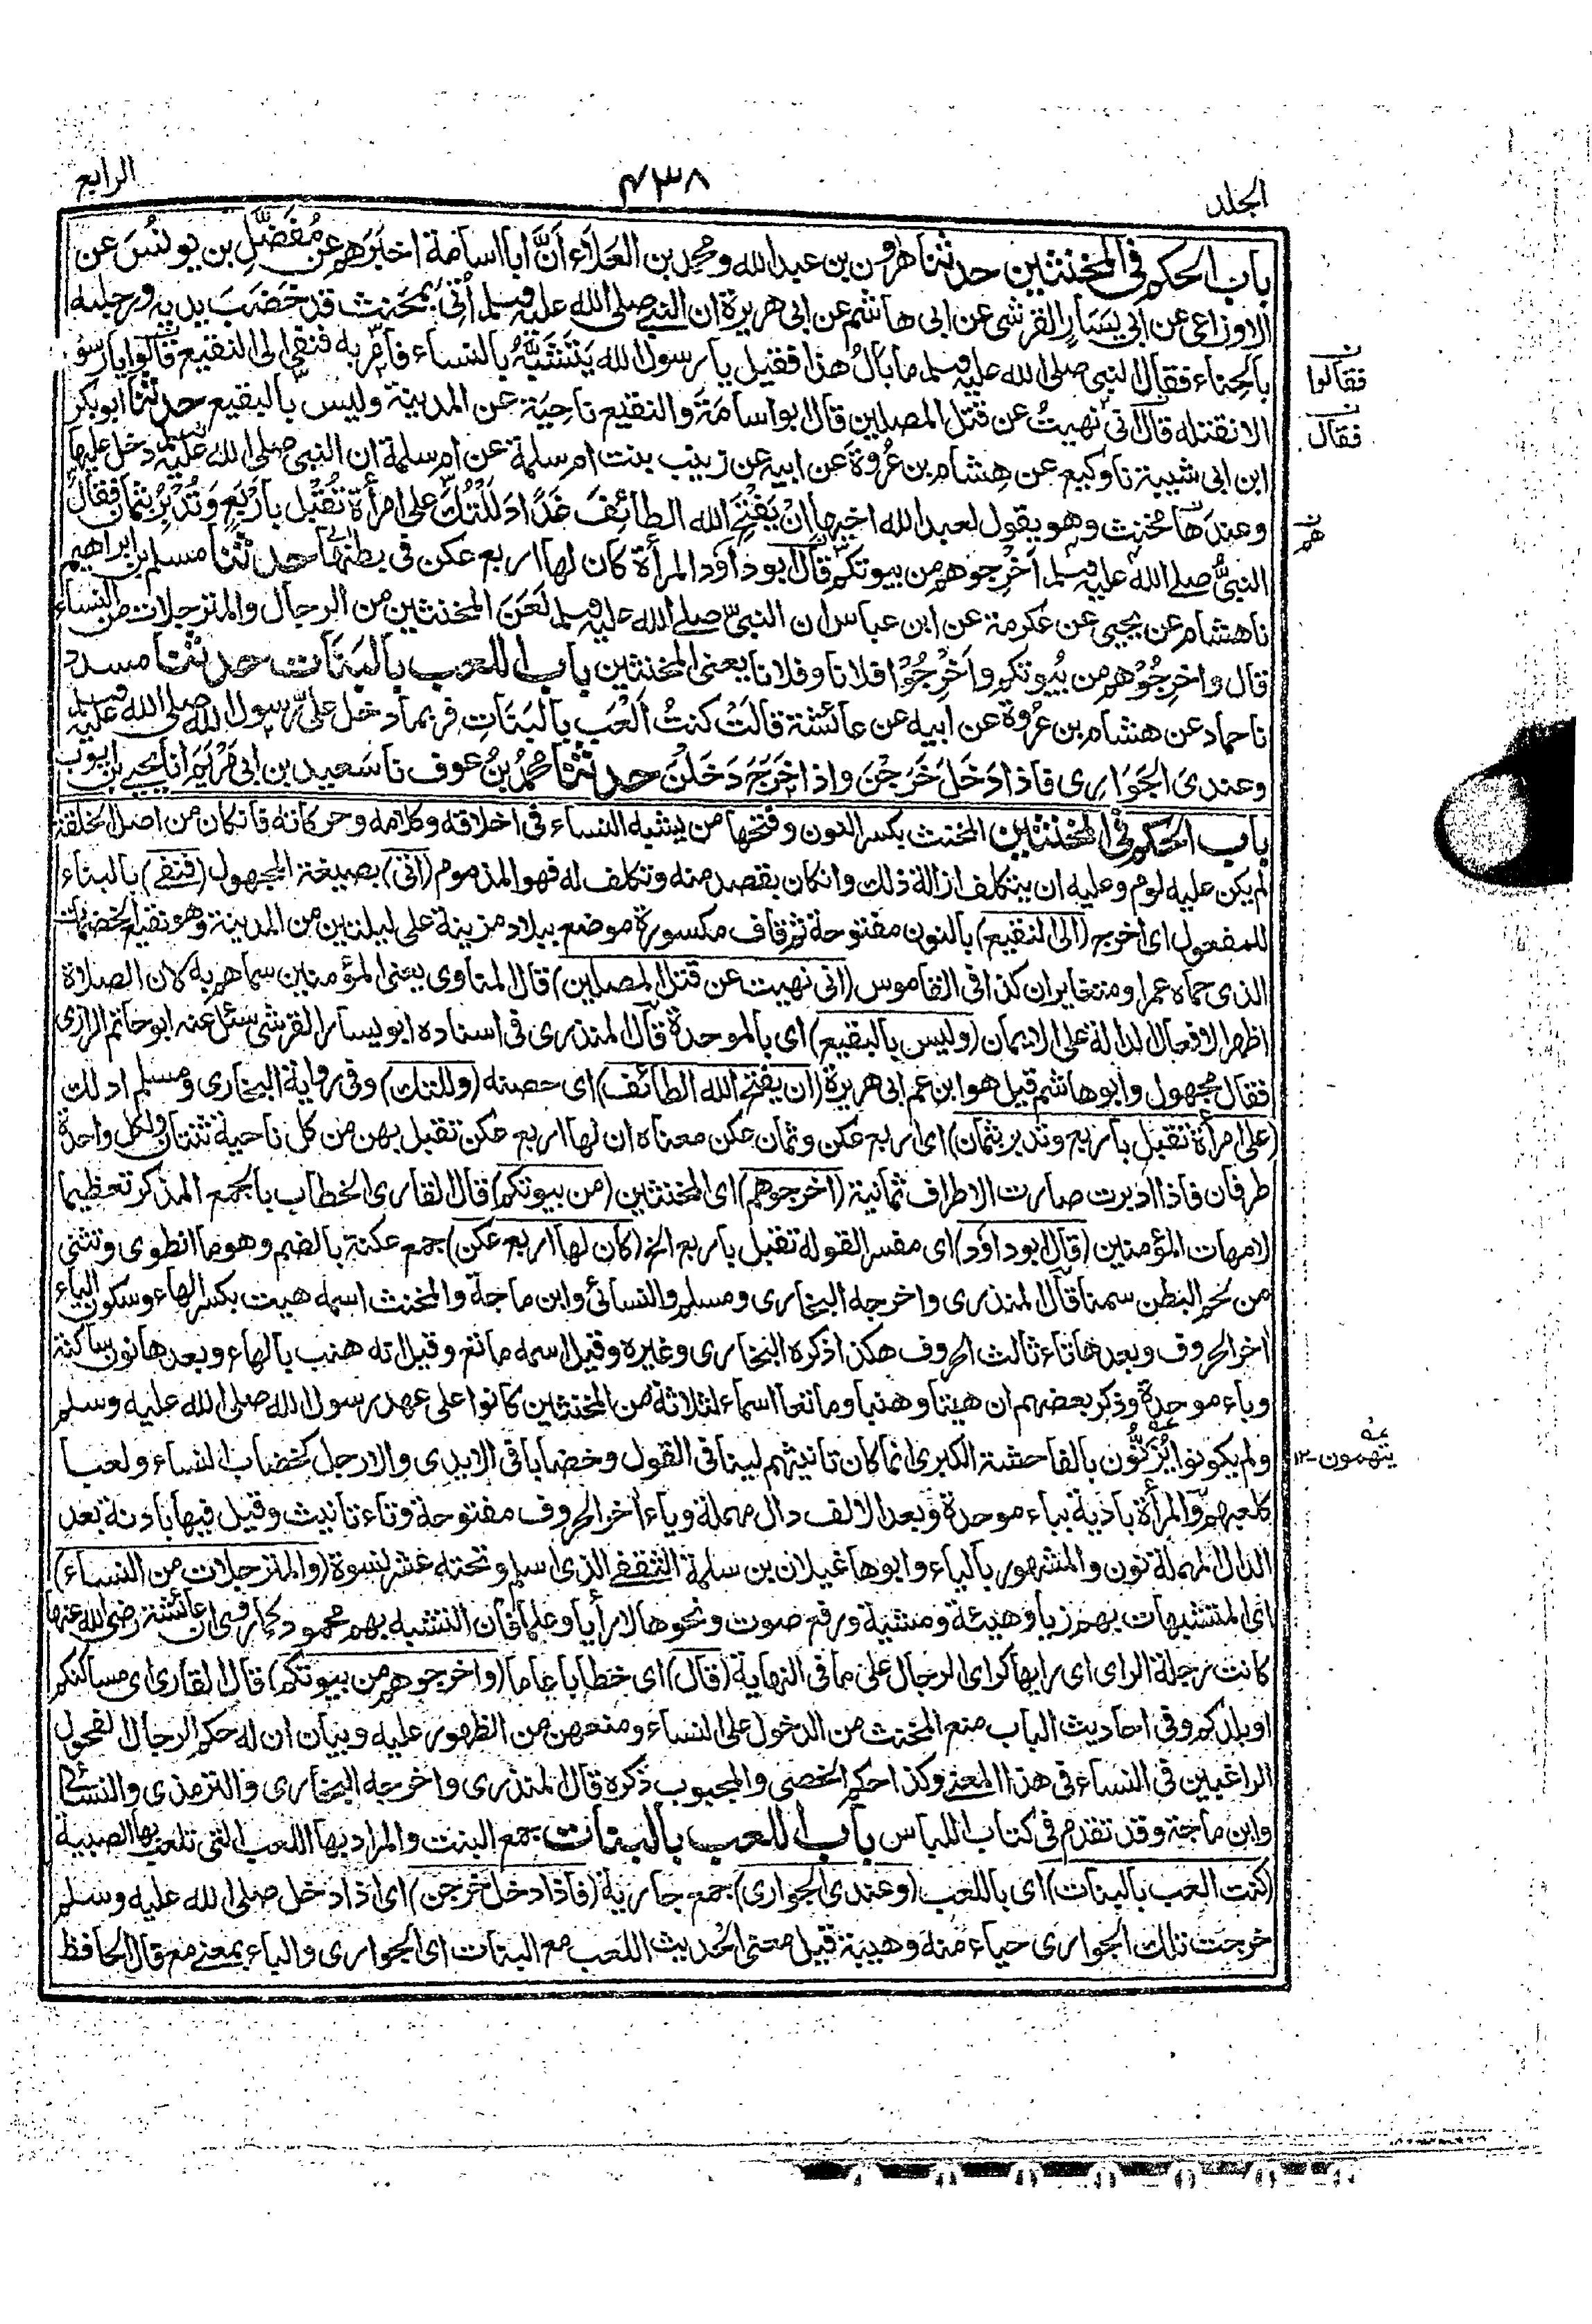 الجلد
٤٣٨
الرابع
باب الحكم في المخنثين حدثنا هرون بن عبد الله ومحمد بن العَلَاء أَنَّ ابا اسامة اخبَرَهم عن مُفَضَّلِ بن يونُسَ عن
الاوزاعي عن ابي يَسَارٍ القرشي عن ابي هاشم عن ابي هريرة ان النبي صلى الله عليه وسلم أُتِيَ بمخنث قد خَضَبَ يديه ورجليه
بالحِناء فقال النبي صلى الله عليه وسلم ما بَالُ هذا فقيل يا رسول الله يَتَشَبَّهُ بالنساء فأمر به فنفي الى النقيع قالوا يا رسول
الا نقتله قال اني نُهيتُ عن قتل المصلين قال ابو اسامَةَ والنقيع ناحِيَة عن المدينة وليس بالبقيع حدثنا ابوبكر
ابن ابي شيبة نا وكيع عن هِشام بن عُروةَ عن ابيه عن زينب بنت ام سلمة عن ام سلمة ان النبي صلى الله عليه وسلم دخل عليها
وعندَها مخنث وهو يقول لعبد الله اخيها اِنْ يَفْتَحِ الله الطائِفَ غَدًا دَلَلْتُكَ على امرأة تُقبل بأَرْبَعٍ وَتُدْبِرُ بثمان فقال
النبيُّ صلى الله عليه وسلم اَخْرِجوهم من بيوتكم قال ابو داود المرأة كان لها اربع عكن في بطنها حدثنا مسلم بن ابراهيم
نا هشام عن يحيى عن عكرمة عن ابن عباس ان النبي صلى الله عليه وسلم لَعَنَ المخنثين من الرجال والمترجلات من النساء
قال واخرِجُوْهم من بُيوتكم واَخْرِجُوْا فلانا وفلانا يعني المخنثين باب اللعب بالبَنَات حدثنا مسدد
نا حماد عن هشام بن عُروة عن ابيه عن عائشة قالَتْ كنتُ اَلْعَب بالبَنَاتِ فربما دخل عليَّ رسول الله صلى الله عليه وسلم
وعندي الجَوَاري فاذا دَخَلَ خَرَجْنَ واذا خَرَجَ دَخَلْنَ حدثنا محمدُ بنُ عوف نا سَعيد بن ابي مَرْيَمَ انا يحيى بن ايوب
باب الحكم في المخنثين المخنث بكسر النون وفتحها من يشبه النساء في اخلاقه وكلامه وحركاته فانكان من اصل الخلقة
لم يكن عليه لوم وعليه ان يتكلف ازالة ذلك وانكان بقصد منه وتكلف له فهو المذموم (اتي) بصيغة المجهول (فنفي) بالبناء
للمفعول اي اُخرج (الى النقيع) بالنون مفتوحة ثم قاف مكسورة موضع ببلاد مزينة على ليلتين من المدينة وهو نقيع الخضمات
الذي حماه عمر او متغايران كذا في القاموس (اني نهيت عن قتل المصلين) قال المناوي يعني المؤمنين سماهم به لان الصلاة
اظهر الافعال الدالة على الايمان (وليس بالبقيع) اي بالموحدة قال المنذري في اسناده ابو يسار القرشي سئل عنه ابو حاتم الرازي
فقال مجهول وابو هاشم قيل هو ابن عم ابي هريرة (ان يفتح الله الطائف) اي حصنه (دللتك) وفي رواية البخاري ومسلم ادلك
(على امرأة تقبل باربع وتدبر بثمان) اي اربع عكن وثمان عكن معناه ان لها اربع عكن تقبل بهن من كل ناحية ثنتان ولكل واحدة
طرفان فاذا ادبرت صارت الاطراف ثمانية (اخرجوهم) اي المخنثين (من بيوتكم) قال القاري الخطاب بالجمع المذكر تعظيما
لامهات المؤمنين (قال ابو داود) اي مفسرا لقوله تقبل باربع الخ (كان لها اربع عكن) جمع عكنة بالضم وهو ما انطوى وتثنى
من لحم البطن سمنا قال المنذري واخرجه البخاري ومسلم والنسائي وابن ماجة والمخنث اسمه هيت بكسر الهاء وسكون الياء
اخر الحروف وبعدها تاء ثالث الحروف هكذا ذكره البخاري وغيره وقيل اسمه ماتع وقيل انه هنب بالهاء وبعدها نون ساكنة
وباء موحدة وذكر بعضهم ان هيتا وهنبا وماتعا اسماء لثلاثة من المخنثين كانوا على عهد رسول الله صلى الله عليه وسلم
ولم يكونوا يُزَنُّون بالفاحشة الكبرى انما كان تانيثهم لينا في القول وخضابا في الايدي والارجل كخضاب النساء ولعبا
كلعبهم والمرأة بادية بباء موحدة وبعد الالف دال مهملة وياء اخر الحروف مفتوحة وتاء تانيث وقيل فيها بادنة بعد
الدال المهملة نون والمشهور بالياء وابوها غيلان بن سلمة الثقفي الذي اسلم وتحته عشر نسوة (والمترجلات من النساء)
اي المتشبهات بهم زيا وهيئة ومشية ورفع صوت ونحوها لا رأيا وعلما فان التشبه بهم محمود كما روي ان عائشة رضي الله عنها
كانت رجلة الراي اي رايها كراي الرجال على ما في النهاية (قال) اي خطابا عاما (واخرجوهم من بيوتكم) قال القاري اي مساكنكم
او بلدكم وفي احاديث الباب منع المخنث من الدخول على النساء ومنعهن من الظهور عليه وبيان ان له حكم الرجال الفحول
الراغبين في النساء في هذا المعنى وكذا حكم الخصي والمجبوب ذكره قال المنذري واخرجه البخاري والترمذي والنسائي
وابن ماجة وقد تقدم في كتاب اللباس باب اللعب بالبنات جمع البنت والمراد بها اللعب التي تلعب بها الصبية
(كنت العب بالبنات) اي باللعب (وعندي الجواري) جمع جارية (فاذا دخل خرجن) اي اذا دخل صلى الله عليه وسلم
خرجت تلك الجواري حياء منه وهيبة قيل معنى الحديث اللعب مع البنات اي الجواري والباء بمعنى مع قال الحافظ
ن
فقالوا
ن
فقال
ن
هم
عه
يتهمون ١٢